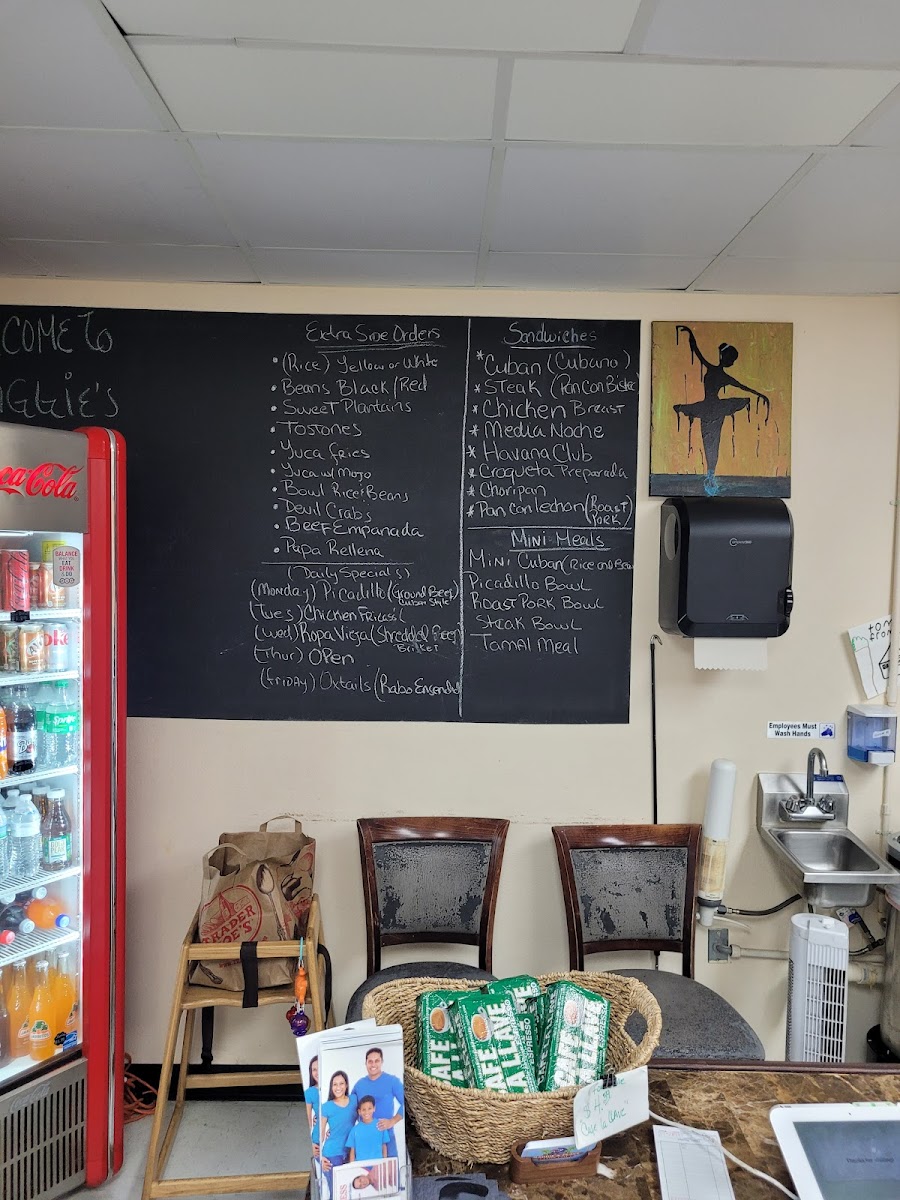 COME To
Aggie's
Extra Side Orders
(Rice) Yellow or White
Beans Black/Red
Sweet Plantains
Tostones
Yuca fries
Yuca w/ Mojo
Bowl Rice & Beans
Devil Crabs
Beef Empanada
Papa Rellena
(Daily Specials)
(Monday) Picadillo (Ground Beef)
Cuban Style
(Tues) Chicken
(Wed) Ropa Vieja (Shredded Beef)
Brisket
(Thur) Open
(FRIDAY) Oxtails (Rabo
Sandwiches
* Cuban (Cubano)
* Steak (Pan con
* Chicken Breast
* Media Noche
* Havana Club
* Croqueta Preparada
* Choripan
* Pan con lechon (Roast
Pork)
Mini Meals
Mini Cuban (Rice and
Picadillo Bowl
Roast Pork Bowl
Steak Bowl
Tamal Meal
Coca-Cola
BALANCE
EAT
DRINK
& DO
Coke
Sprite
Employees Must
Wash Hands
TRADER
JOE'S
CAFE
A LLAVE
ESPRESSO